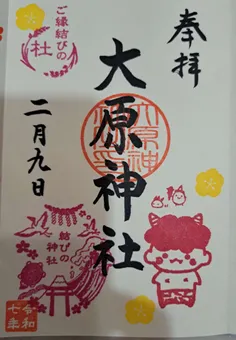 奉拝
大原神社
二月九日
ご縁結びの
社
結びの
神社
令和
七年